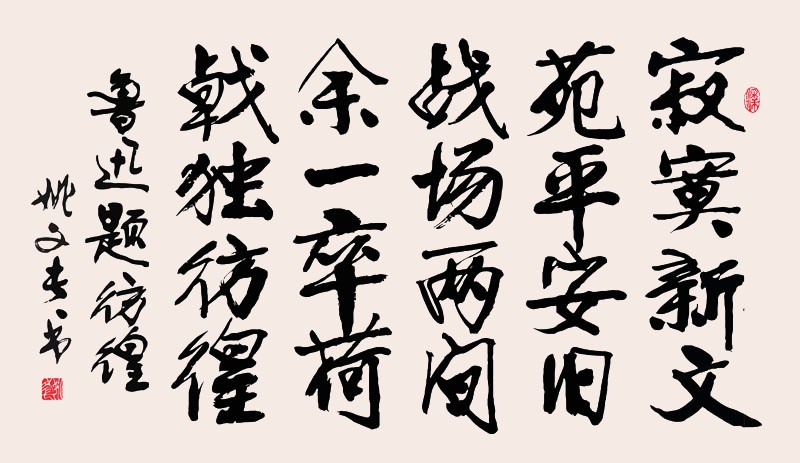 寂寞新文
苑平安旧
战场两间
余一卒荷
戟独彷徨
鲁迅题彷徨
姚文春书